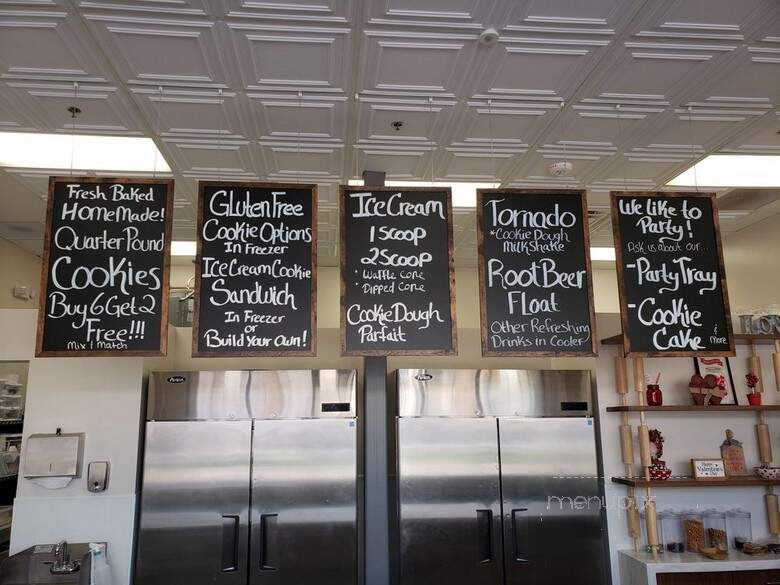 Fresh Baked
HomeMade!
Quarter Pound
Cookies
Buy 6 Get 2
Free!!!
Mix & Match
Gluten Free
Cookie Options
In Freezer
Ice Cream Cookie
Sandwich
In Freezer
or
Build Your Own!
Ice Cream
1 Scoop
2 Scoop
* Waffle Cone
* Dipped Cone
Cookie Dough
Parfait
Tornado
*Cookie Dough
Milkshake
Root Beer
Float
Other Refreshing
Drinks in Cooler
We like to
Party!
Ask us about our...
-Party Tray
-Cookie
Cake & more
Happy
Valentine's
Day
menupix